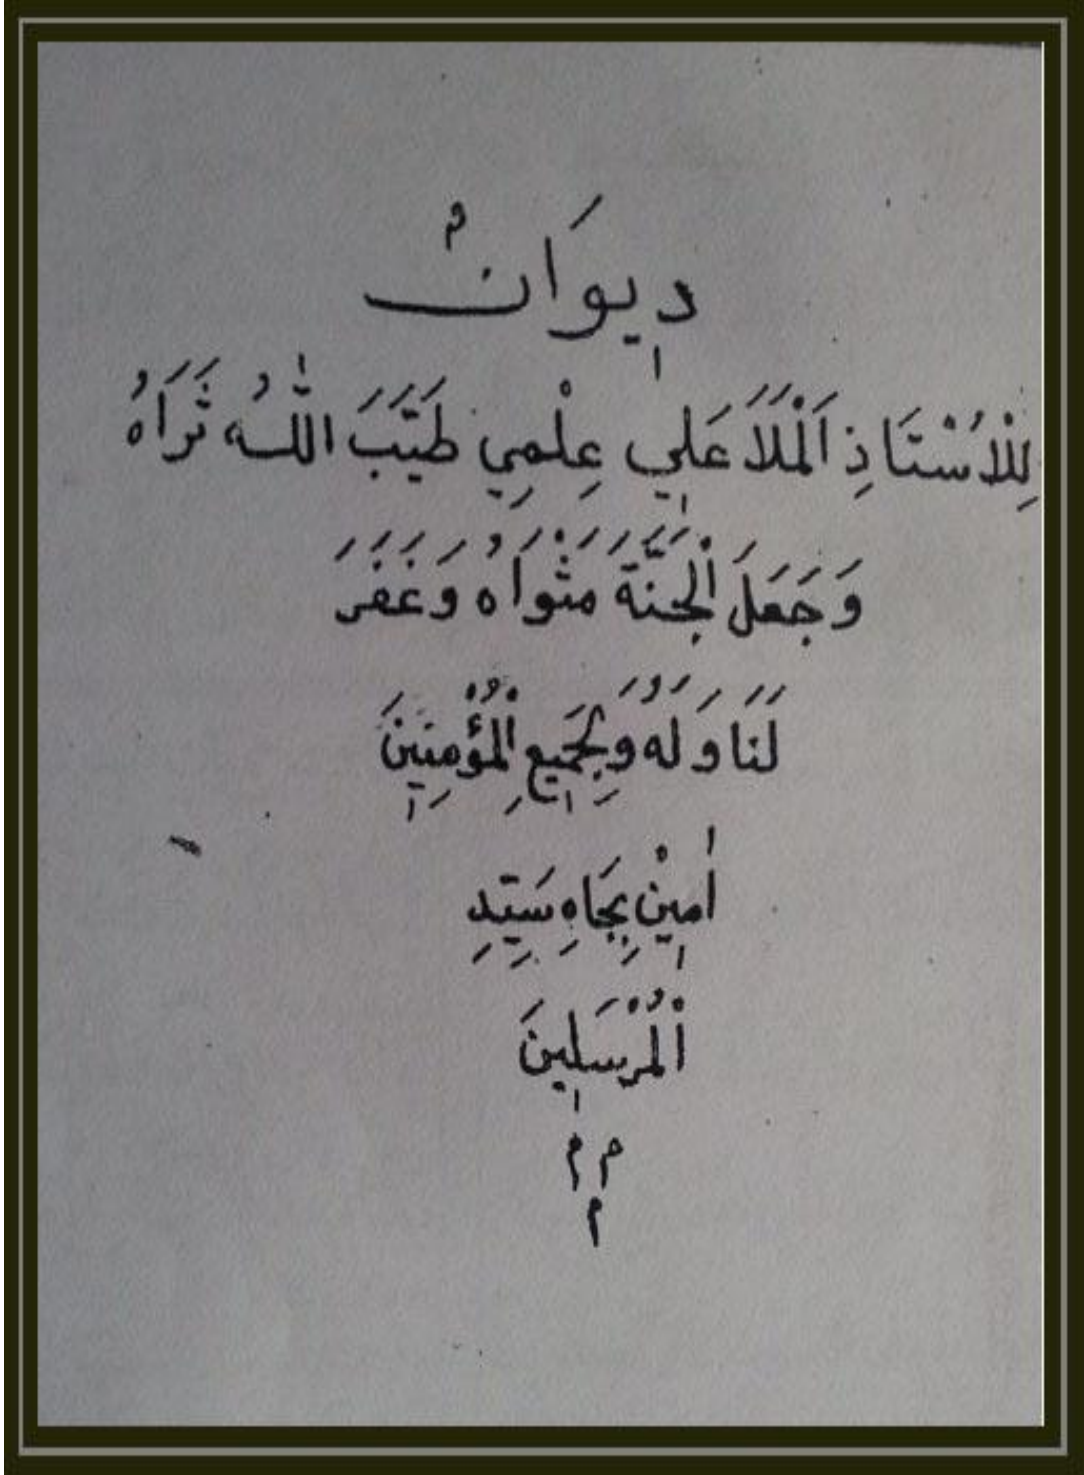 دِيوَانْ م
لِلْأُسْتَاذِ اَلْمَلَا عَلِي عِلْمِي طَيَّبَ اللّٰهُ ثَرَاهُ
وَجَعَلَ الْجَنَّةَ مَثْوَاهُ وَغَفَرَ
لَنَا وَلَهُ وَلِجَمِيعِ الْمُؤْمِنِينَ
اٰمِيْنْ بِجَاهِ سَيِّدِ
الْمُرْسَلِينَ
م م
م